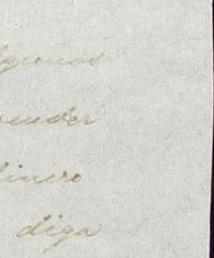 lgunos
ender
dinero
diga